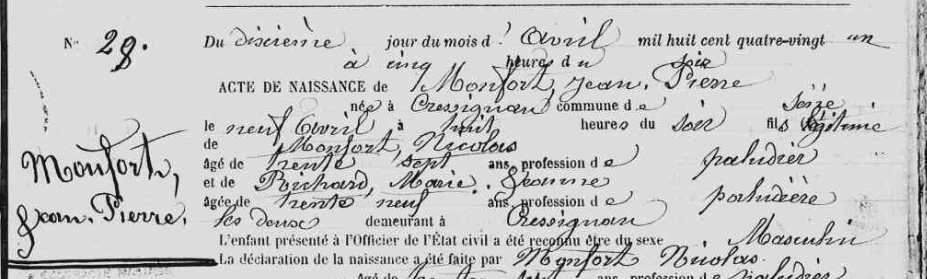 N° 28.
Du dixième jour du mois d' Avril mil huit cent quatre-vingt un
à cinq heures du soir
ACTE DE NAISSANCE de Monfort, Jean. Pierre
née à Cressignan commune de
le neuf Avril à huit heures du soir fils légitime
de Monfort, Nicolas
âgé de trente sept ans, profession de paludier
et de Richard, Marie. Jeanne
âgée de trente neuf ans, profession de paludière
les deux demeurant à Cressignan
L'enfant présenté à l'Officier de l'État civil a été reconnu être du sexe Masculin
La déclaration de la naissance a été faite par Monfort Nicolas.
âgé de trente sept ans, profession de paludier
Monfort,
Jean. Pierre.